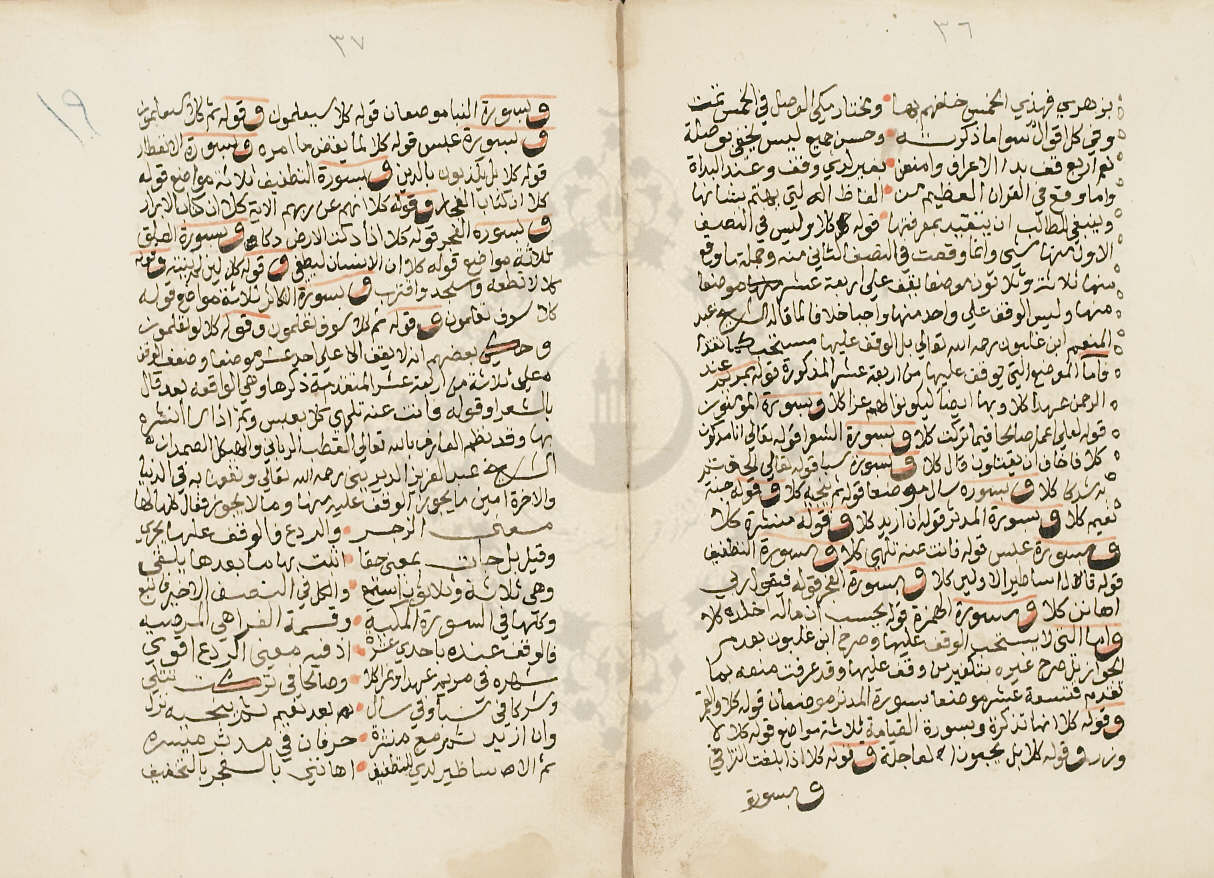 ٣٦
بزهري فهذي الخمس خلفهم بها ومختار مكي الوصل في الخمس تمت
وفي كل اقوال سوا ما ذكرت وحسن جميع ليس يخفى بوصلة
ثم اربع قف بدا الاعراق وامنعن بغير لدي وقف وعند البداة
واما وقع في القران العظيم من الفاظ اله التي يهتم بشانها
وينبغي للطالب ان يتقيد بمعرفتها قوله كلا وليس في النصف
الاول منها شي وانما وقعت في النصف الثاني منه وجملة ما وقع
منها ثلاثة وثلاثون موضعا يقف على اربعة عشر موضعا
منها وليس الوقف على واحد منها واجبا خلافا لما قاله الشيخ عبد
المنعم ابن غلبون رحمه الله تعالى بل الوقف عليها مستحب كما تقدم
فاما الموضع التي يوقف عليها من اربعة عشر المذكورة قوله بمريم عند
الرحمن عهدا كلا وبها ايضا ليكونوا لهم عزا كلا وبسورة المؤمنون
قوله لعلي اعمل صالحا فيما تركت كلا وبسورة الشعرا قوله تعالى انا لمدركون
كلا فاخاف ان يقتلون قال كلا وبسورة سبا قوله تعالى الحقتم
به شركا كلا وبسورة سال موضعا قوله ثم ينجيه كلا وقوله جنة
نعيم كلا وبسورة المدثر قوله ان ازيد كلا وقوله منشرة كلا
وبسورة عبس قوله فانت عنه تلهي كلا وبسورة التطفيف
قوله قال اساطير الاولين كلا وبسورة الفجر قوله فيقول ربي
اهانن كلا وبسورة الهمزة قوله يحسب ان ماله اخلده كلا
واما التي لا يستحب الوقف عليها وصرح ابن غلبون بعدم
الجواز بل صرح غيره بتكفير من وقف عليها وقد عرفت منعه بما
تقدم فتسعة عشر موضعا بسورة المدثر موضعان قوله كلا والقمر
وقوله كلا انها تذكرة وبسورة القيامة ثلاثة مواضع قوله كلا لا
وزر وقوله كلا بل يحبون العاجلة وقوله كلا اذا بلغت التراقي
وبسورة
٣٧
١٩
وبسورة النبا موضعان قوله كلا سيعلمون وقوله ثم كلا سيعلمون
وبسورة عبس قوله كلا لما يقض ما امره وبسورة الانفطار
قوله كلا بل يكذبون بالدين وبسورة التطفيف ثلاثة مواضع قوله
كلا ان كتاب الفجار وقوله كلا انهم عن ربهم الاية كلا ان كتاب الابرار
وبسورة الفجر قوله كلا اذا دكت الارض دكا وبسورة العلق
ثلاثة مواضع قوله كلا ان الانسان ليطغى وقوله كلا لين لم ينته وقوله
كلا لا تطعه واسجد واقترب وبسورة التكاثر ثلاثة مواضع قوله
كلا سوف تعلمون وقوله ثم كلا سوف تعلمون وقوله كلا لو تعلمون
وحكي بعضهم انه لا يقف الا على احد عشر موضعا وضعف الوقف
على ثلاثة من اربعة عشر المتقدمة ذكرها وهي الواقعة بعد قال
بالشعرا وقوله فانت عنه تلهى كلا بعبس وثم اذا انشره
بها وقد نظم العارف بالله تعالى القطب الرباني والهيكل الصمداني
الشيخ عبد العزيز الديريني رحمه الله تعالى ونفعنا به في الدنيا
والاخرة امين ما يجوز الوقف عليه منها وما لا يجوز فقال
معنى الزجر والردع فالوقف عليها يجري
وقيل بل جات بمعنى حقا اتت بها ما بعدها يلقى
وهي ثلاثة وثلاثون والكل في النصف الاخير فاتبع
وكلها في السورة المكية وقسمة الفرا هي المرضيه
فالوقف عنده باحدي عشرة اذ فيه معنى الردع اقوى
شهره في مريم عهدا وعزا كلا وصالحا في تركت تتلى
وشركا في سبا وفي سال بعد نعيم ثم ينجيه نزل
وان ازيد ثم مع منشرة حرفان في مدثر ميسره
ثم الاساطير لدي التطفيف اهانني بالفجر بالتخفيف